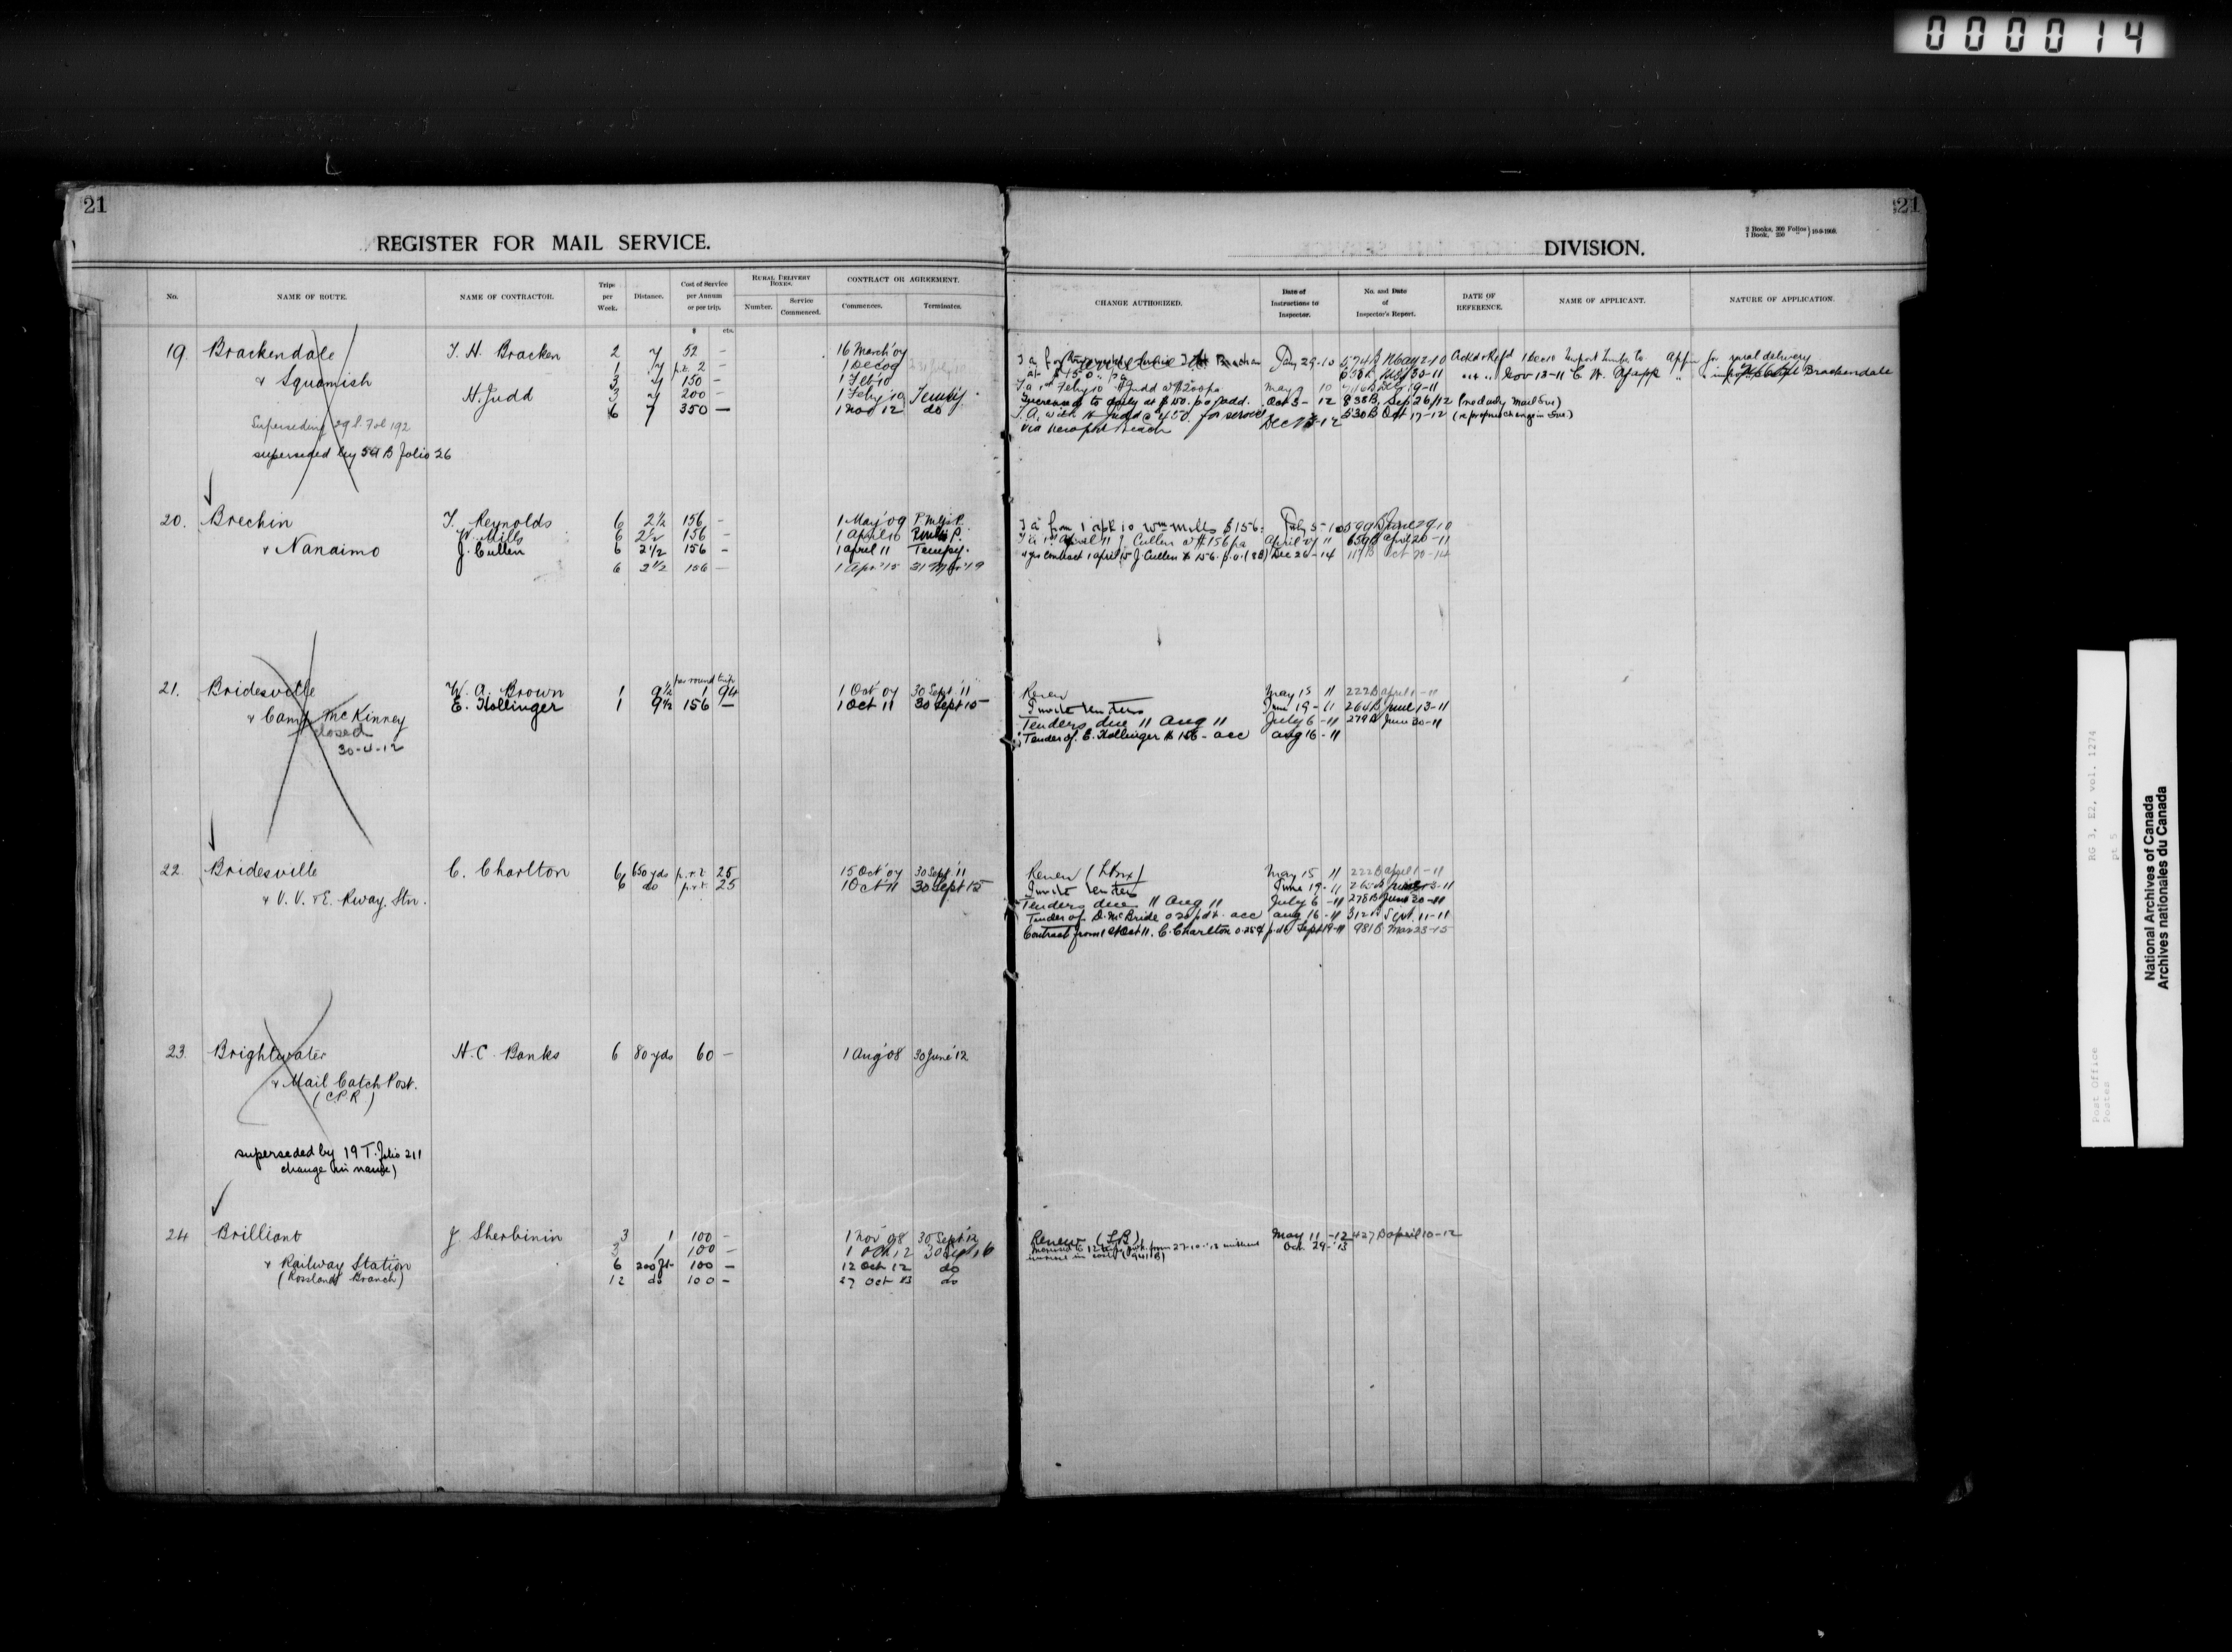 000014
21
REGISTER FOR MAIL SERVICE.
21
DIVISION.
2 Books, 300 Folios
1 Book, 250 " } 10-9-1908.
No.
NAME OF ROUTE.
NAME OF CONTRACTOR.
Trips per Week.
Distance.
Cost of Service per Annum or per trip.
RURAL DELIVERY BOXES.
Number.
Service Commenced.
CONTRACT OR AGREEMENT.
Commences.
Terminates.
CHANGE AUTHORIZED.
Date of Instructions to Inspector.
No. and Date of Inspector's Report.
DATE OF REFERENCE.
NAME OF APPLICANT.
NATURE OF APPLICATION.
$ cts.
19. Brackendale T. H. Bracken 2 7 52 - 16 March '09
1 7 p.t. 2 - 1 Dec 09
& Squamish 3 7 150 - 1 Feb '10
H. Judd 3 7 200 - 1 Feby '10 Tempy.
6 7 350 - 1 Nov 12 do
Superseding 29 L. Fol 192
superseded by 59 B Folio 26
Jan 29-10 574 B May 2-10 Ackd & Refd 1 Dec 10 for rural delivery
at $150 " pa Nov 13-11 Brackendale
T.a 1st Feby 10 H Judd at $200 pa May 9 10 Dec 19-11
Increased to daily at $150. pa Judd. Oct 3-12 838 B Sep 26/12 (re daily mail Sve)
T.A. with H Judd @ 450. for service 530 B Oct 17-12 (re proposed change in Sve)
via Newport Beach Dec 13-12
20. Brechin T. Reynolds 6 2½ 156 - 1 May '09 P.Mlgs P.
W. Mills 6 2½ 156 - 1 April 10
& Nanaimo J. Cullen 6 2½ 156 - 1 April 11 Tempy.
6 2½ 156 - 1 Apr '15 31 Mar '19
T a from 1 Apl 10 Wm Mills $156. July 5-10 599 B June 29 10
T.a 1st April 11 J Cullen at $156 pa April 27 11 659 B April 20-11
4 yrs contract 1 April 15 J. Cullen $156. p.a. (8B) Dec 26-14 117 B Oct 20-14
per round trip
21. Bridesville W. A. Brown 1 9½ 1 94 1 Oct '07 30 Sept '11
& Camp McKinney E. Hollinger 1 9½ 156 - 1 Oct 11 30 Sept 15
closed
30-4-12
Renew May 15 11 222 B April 1-11
Invite tenders June 19-11 264 B June 13-11
Tenders due 11 Aug 11 July 6-11 279 B June 30-11
Tender of E. Hollinger $156 - acc Aug 16-11
22. Bridesville C. Charlton 6 650 yds p.r.t. 25 15 Oct '07 30 Sept '11
& V. V. & E. Rway. Stn. 6 do p.r.t. 25 1 Oct 11 30 Sept 15
Renew May 15 11 222 B April 1-11
Invite tenders June 19-11 265 B June 13-11
Tenders due 11 Aug 11 July 6-11 278 B June 30-11
Tender of D. McBride 0.20 p.d.t. acc Aug 16-11 312 B Sept. 11-11
Contract from 1st Oct 11. C. Charlton 0.25¢ p.dt Sept 19-11 981 B Mar 23-15
23. Brightwater H. C. Banks 6 80 yds 60 - 1 Aug '08 30 June '12
& Mail Catch Post.
(C.P.R.)
superseded by 19 T. Folio 211
change in name)
24 Brilliant J Sherbinin 3 1 100 - 1 Nov 08 30 Sept '12
3 1 100 - 1 Oct 12 30 Sept 16
& Railway Station 6 200 ft 100 - 12 Oct 12 do
(Rossland Branch) 12 do 100 - 27 Oct 13 do
Renew (LB) May 11-12 427 B April 10-12
Increased to 12 trips p.wk. from 27-10-'13 without Oct. 29-'13
increase in cost
Post Office RG 3, E2, vol. 1274
Postes pt 5
National Archives of Canada
Archives nationales du Canada